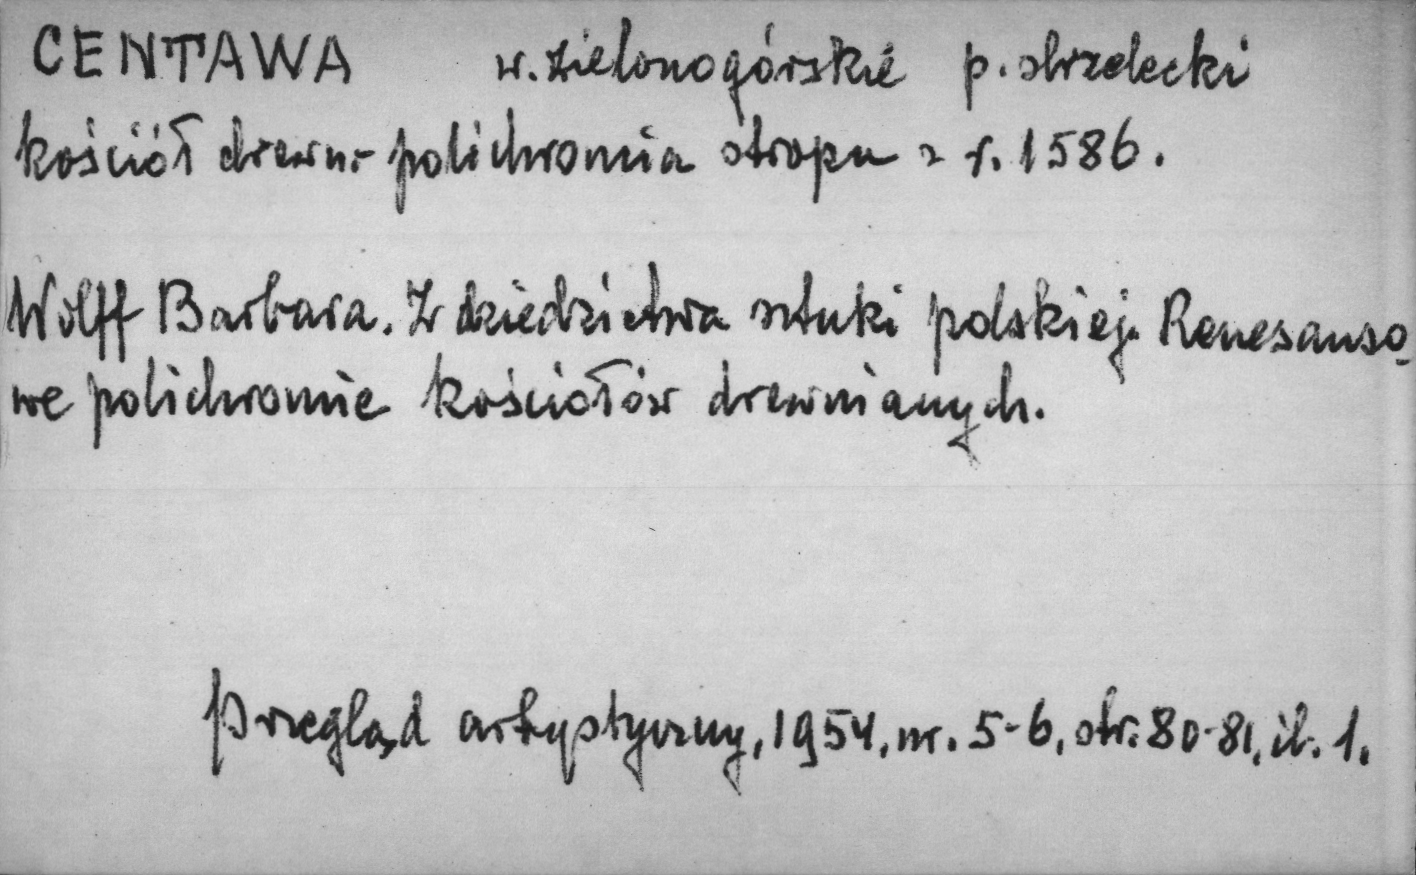 CENTAWA w. zielonogórskie p. strzelecki
kościół drewn. polichromia stropu z r. 1586.
Wolff Barbara. Z dziedzictwa sztuki polskiej. Renesanso-
we polichromie kościołów drewnianych.
Przegląd artystyczny, 1954, nr. 5-6, str. 80-81, il. 1.